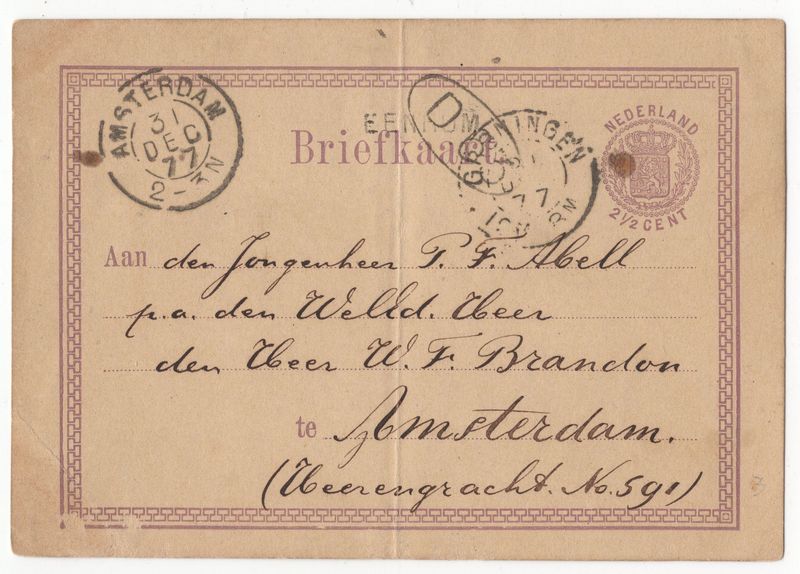 AMSTERDAM
31
DEC
77
2-3N
EENRUM
D
GRONINGEN
77
NEDERLAND
2½ CENT
Briefkaart
Aan den Jongenheer P. F. Abell
p.a. den WelEd. Heer
den Heer W. F. Brandon
te Amsterdam.
(Heerengracht. No. 591)